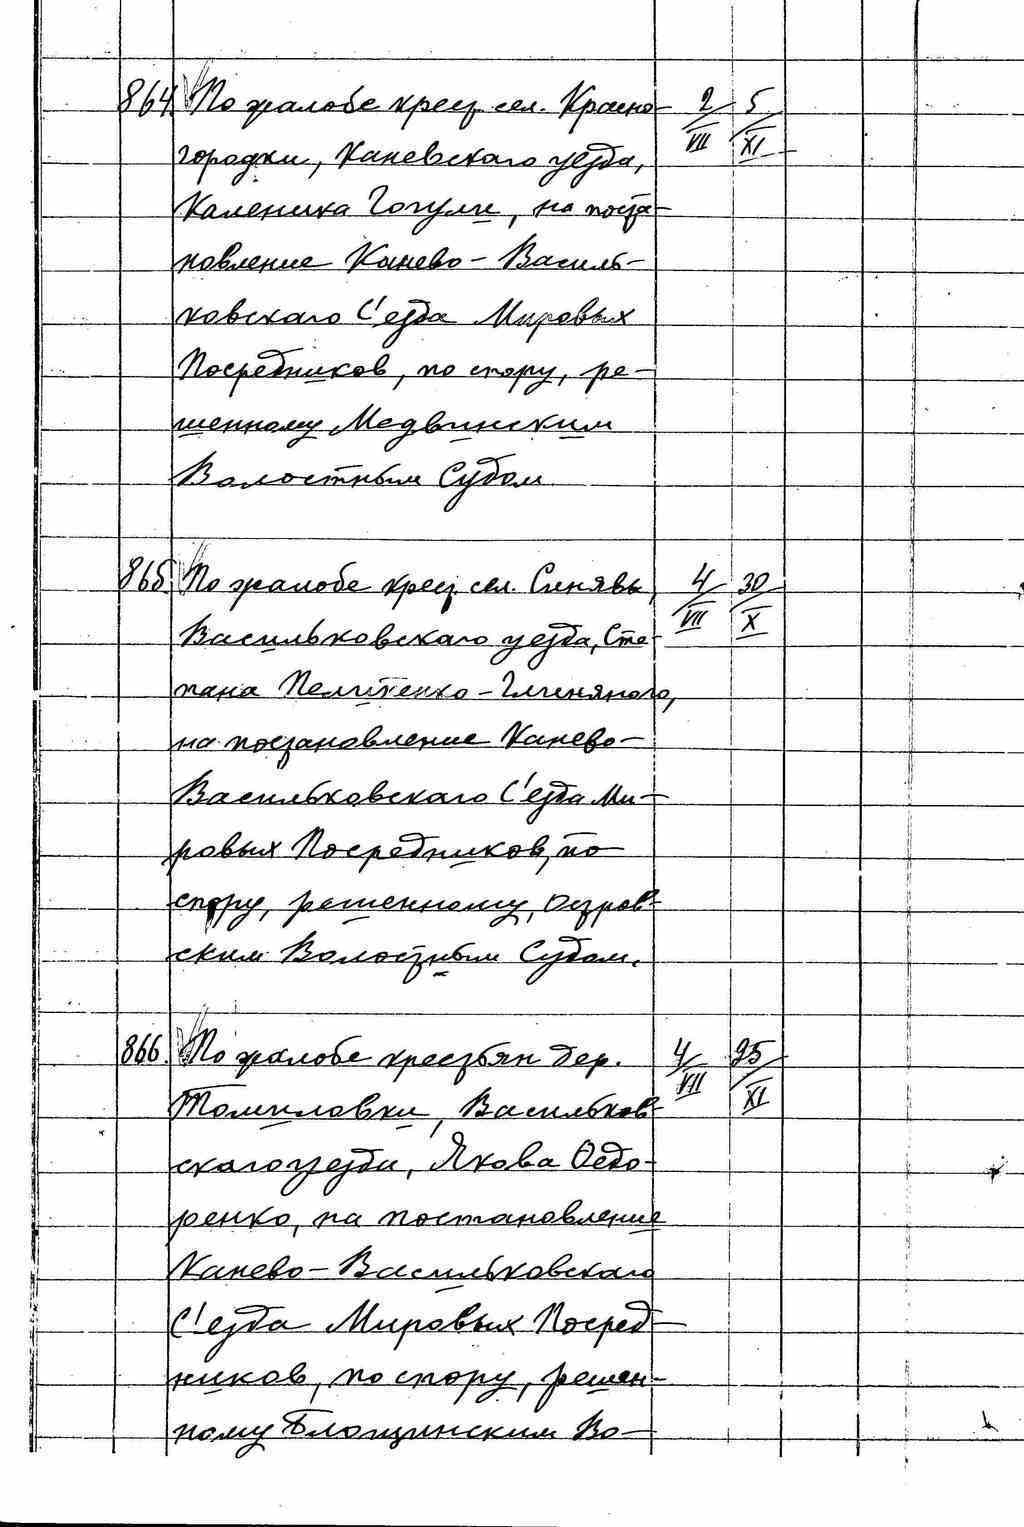 864. По жалобе крест. сел. Красно- 2/VII 5/XI
городки, Каневскаго уезда,
Каленика Гогули, на поста-
новление Канево-Василь-
ковскаго С'езда Мировых
Посредников, по спору, ре-
шенному Медвинским
Волостным Судом
865. По жалобе крест. сел. Синявы, 4/VII 30/X
Васильковскаго уезда, Сте-
пана -Глиняного,
на постановление Канево-
Васильковскаго С'езда Ми-
ровых Посредников, по
спору, решенному, Остров-
ским Волостным Судом.
866. По жалобе крестьян дер. 4/VII 25/XI
Томиловки, Васильков-
скаго уезда, Якова Федо-
ренко, на постановление
Канево-Васильковскаго
С'езда Мировых Посред-
ников, по спору, решен-
ному Блощинским Во-